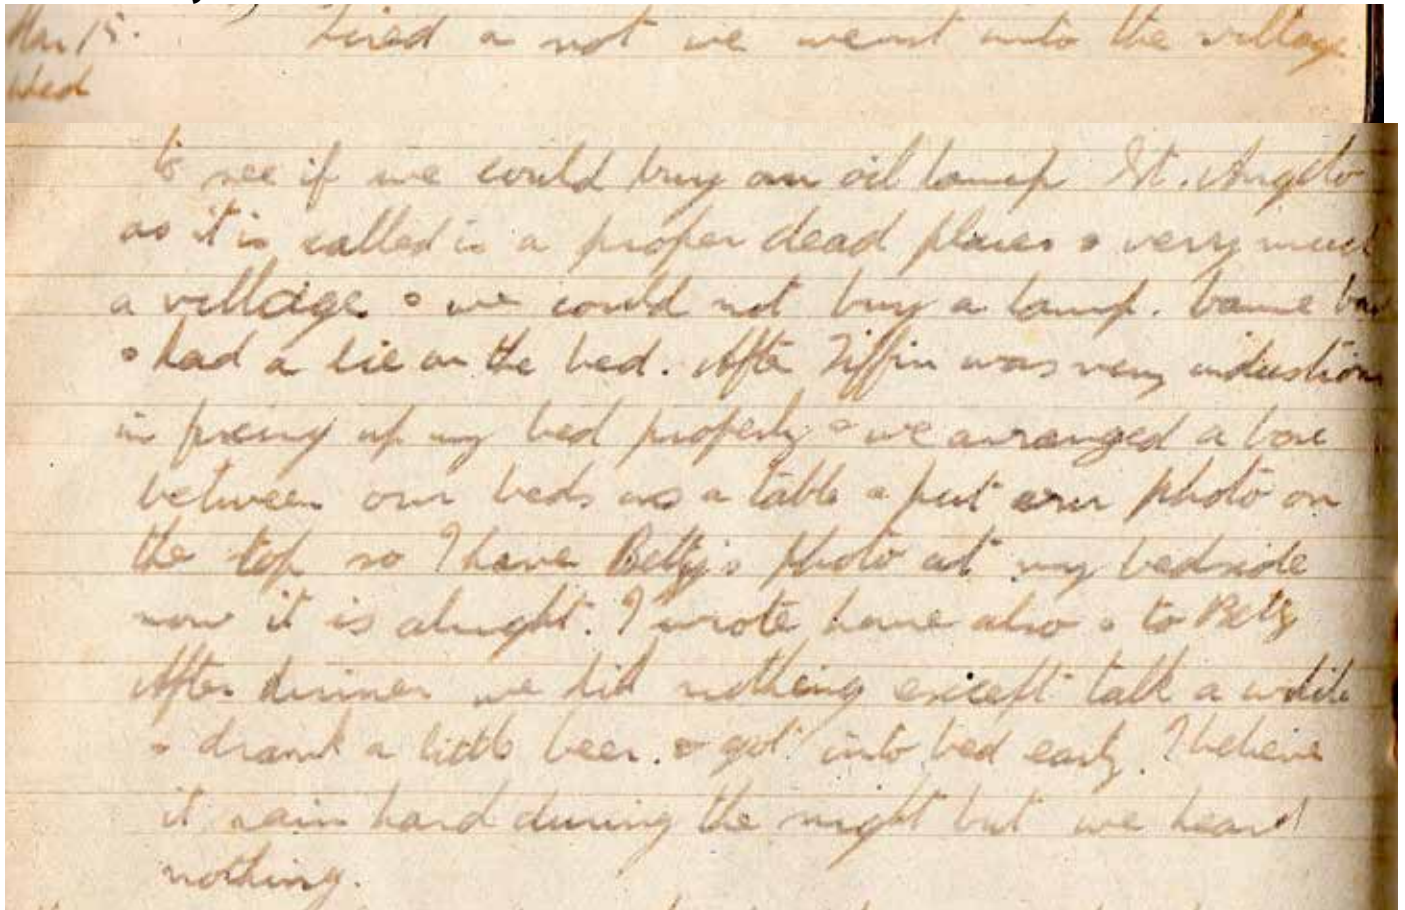 Mar 15. Tired a not we went into the village
Wed
to see if we could buy an oil lamp St. Angelo
as it is called is a proper dead places & very much
a village & we could not buy a lamp. Came bac
& had a lie on the bed. After Tiffin was very industrious
in fixing up my bed properly & we arranged a box
between our beds as a table & put our photo on
the top so I have Betty's photo at my bedside
now it is alright. I wrote home also & to Betty
After dinner we did nothing except talk a while
& drank a little beer. & got into bed early. I believe
it rain hard during the night but we heard
nothing.